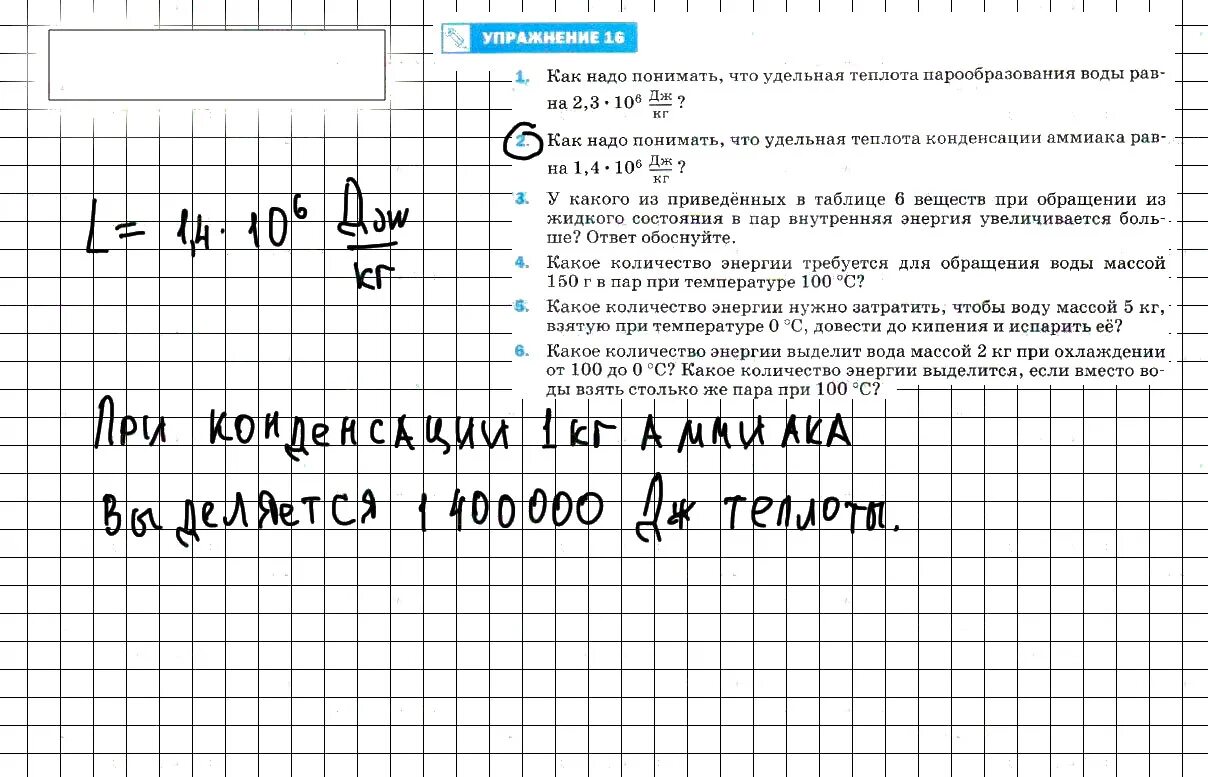 УПРАЖНЕНИЕ 16
1. Как надо понимать, что удельная теплота парообразования воды рав-
на 2,3 · 10⁶ Дж/кг ?
2. Как надо понимать, что удельная теплота конденсации аммиака рав-
на 1,4 · 10⁶ Дж/кг ?
3. У какого из приведённых в таблице 6 веществ при обращении из
жидкого состояния в пар внутренняя энергия увеличивается боль-
ше? Ответ обоснуйте.
4. Какое количество энергии требуется для обращения воды массой
150 г в пар при температуре 100 °С?
5. Какое количество энергии нужно затратить, чтобы воду массой 5 кг,
взятую при температуре 0 °С, довести до кипения и испарить её?
6. Какое количество энергии выделит вода массой 2 кг при охлаждении
от 100 до 0 °С? Какое количество энергии выделится, если вместо во-
ды взять столько же пара при 100 °С?
L = 1,4 · 10⁶ Дж/кг
При конденсации 1 кг аммиака
выделяется 1 400 000 Дж теплоты.